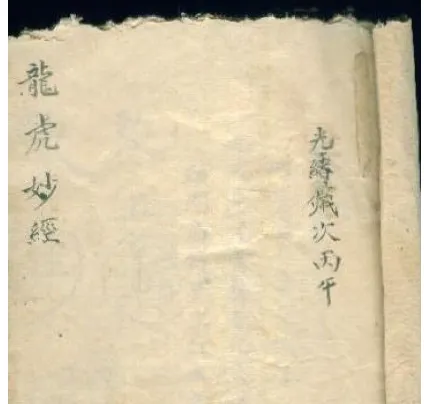 光緒歲次丙午
龍虎妙經